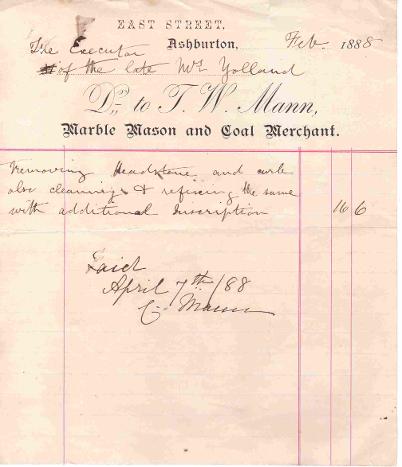 EAST STREET,
Ashburton, Feb. 1888
The Executor
of the late Mr Yolland
Dr. to T. W. Mann,
Marble Mason and Coal Merchant.
Removing Headstone and curb
also cleaning & refixing the same
with additional inscription 16 6
Paid
April 7th/88
C. Mann